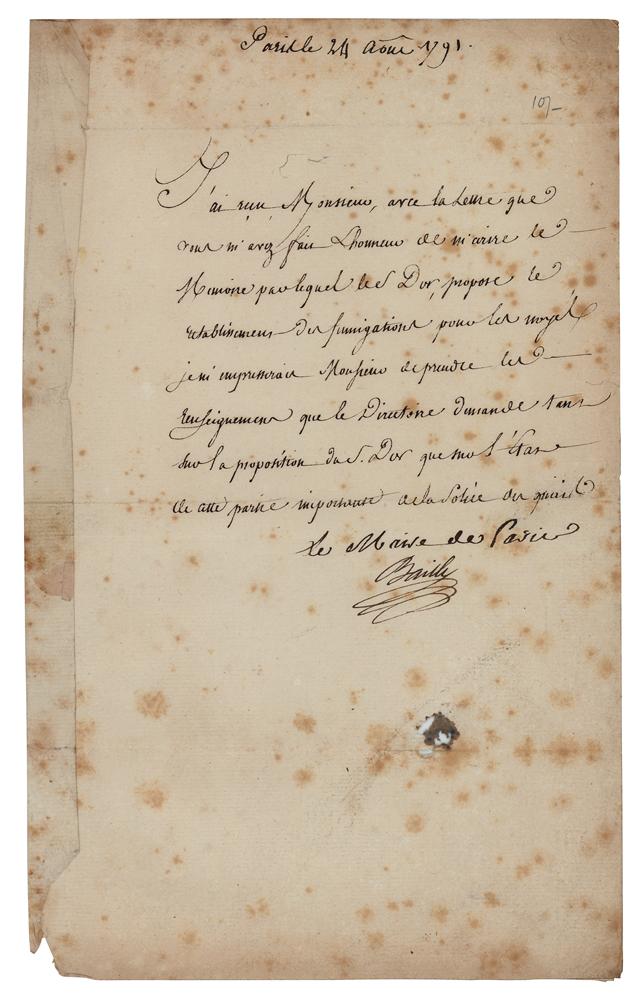 Paris le 24 Aout 1791.
10/-
J'ai reçu Monsieur, avec la Lettre que
vous m'avez fait L'honneur de m'ecrire le
Memoire par lequel le S Dor, propose le
retablissement des fumigations pour les noyés
je m'empresserai Monsieur de prendre les
Renseignemens que le Directoire demande tant
sur la proposition du S. Dor que sur l'État
de cette partie importante de la Police des
le Maire de Paris
Bailly